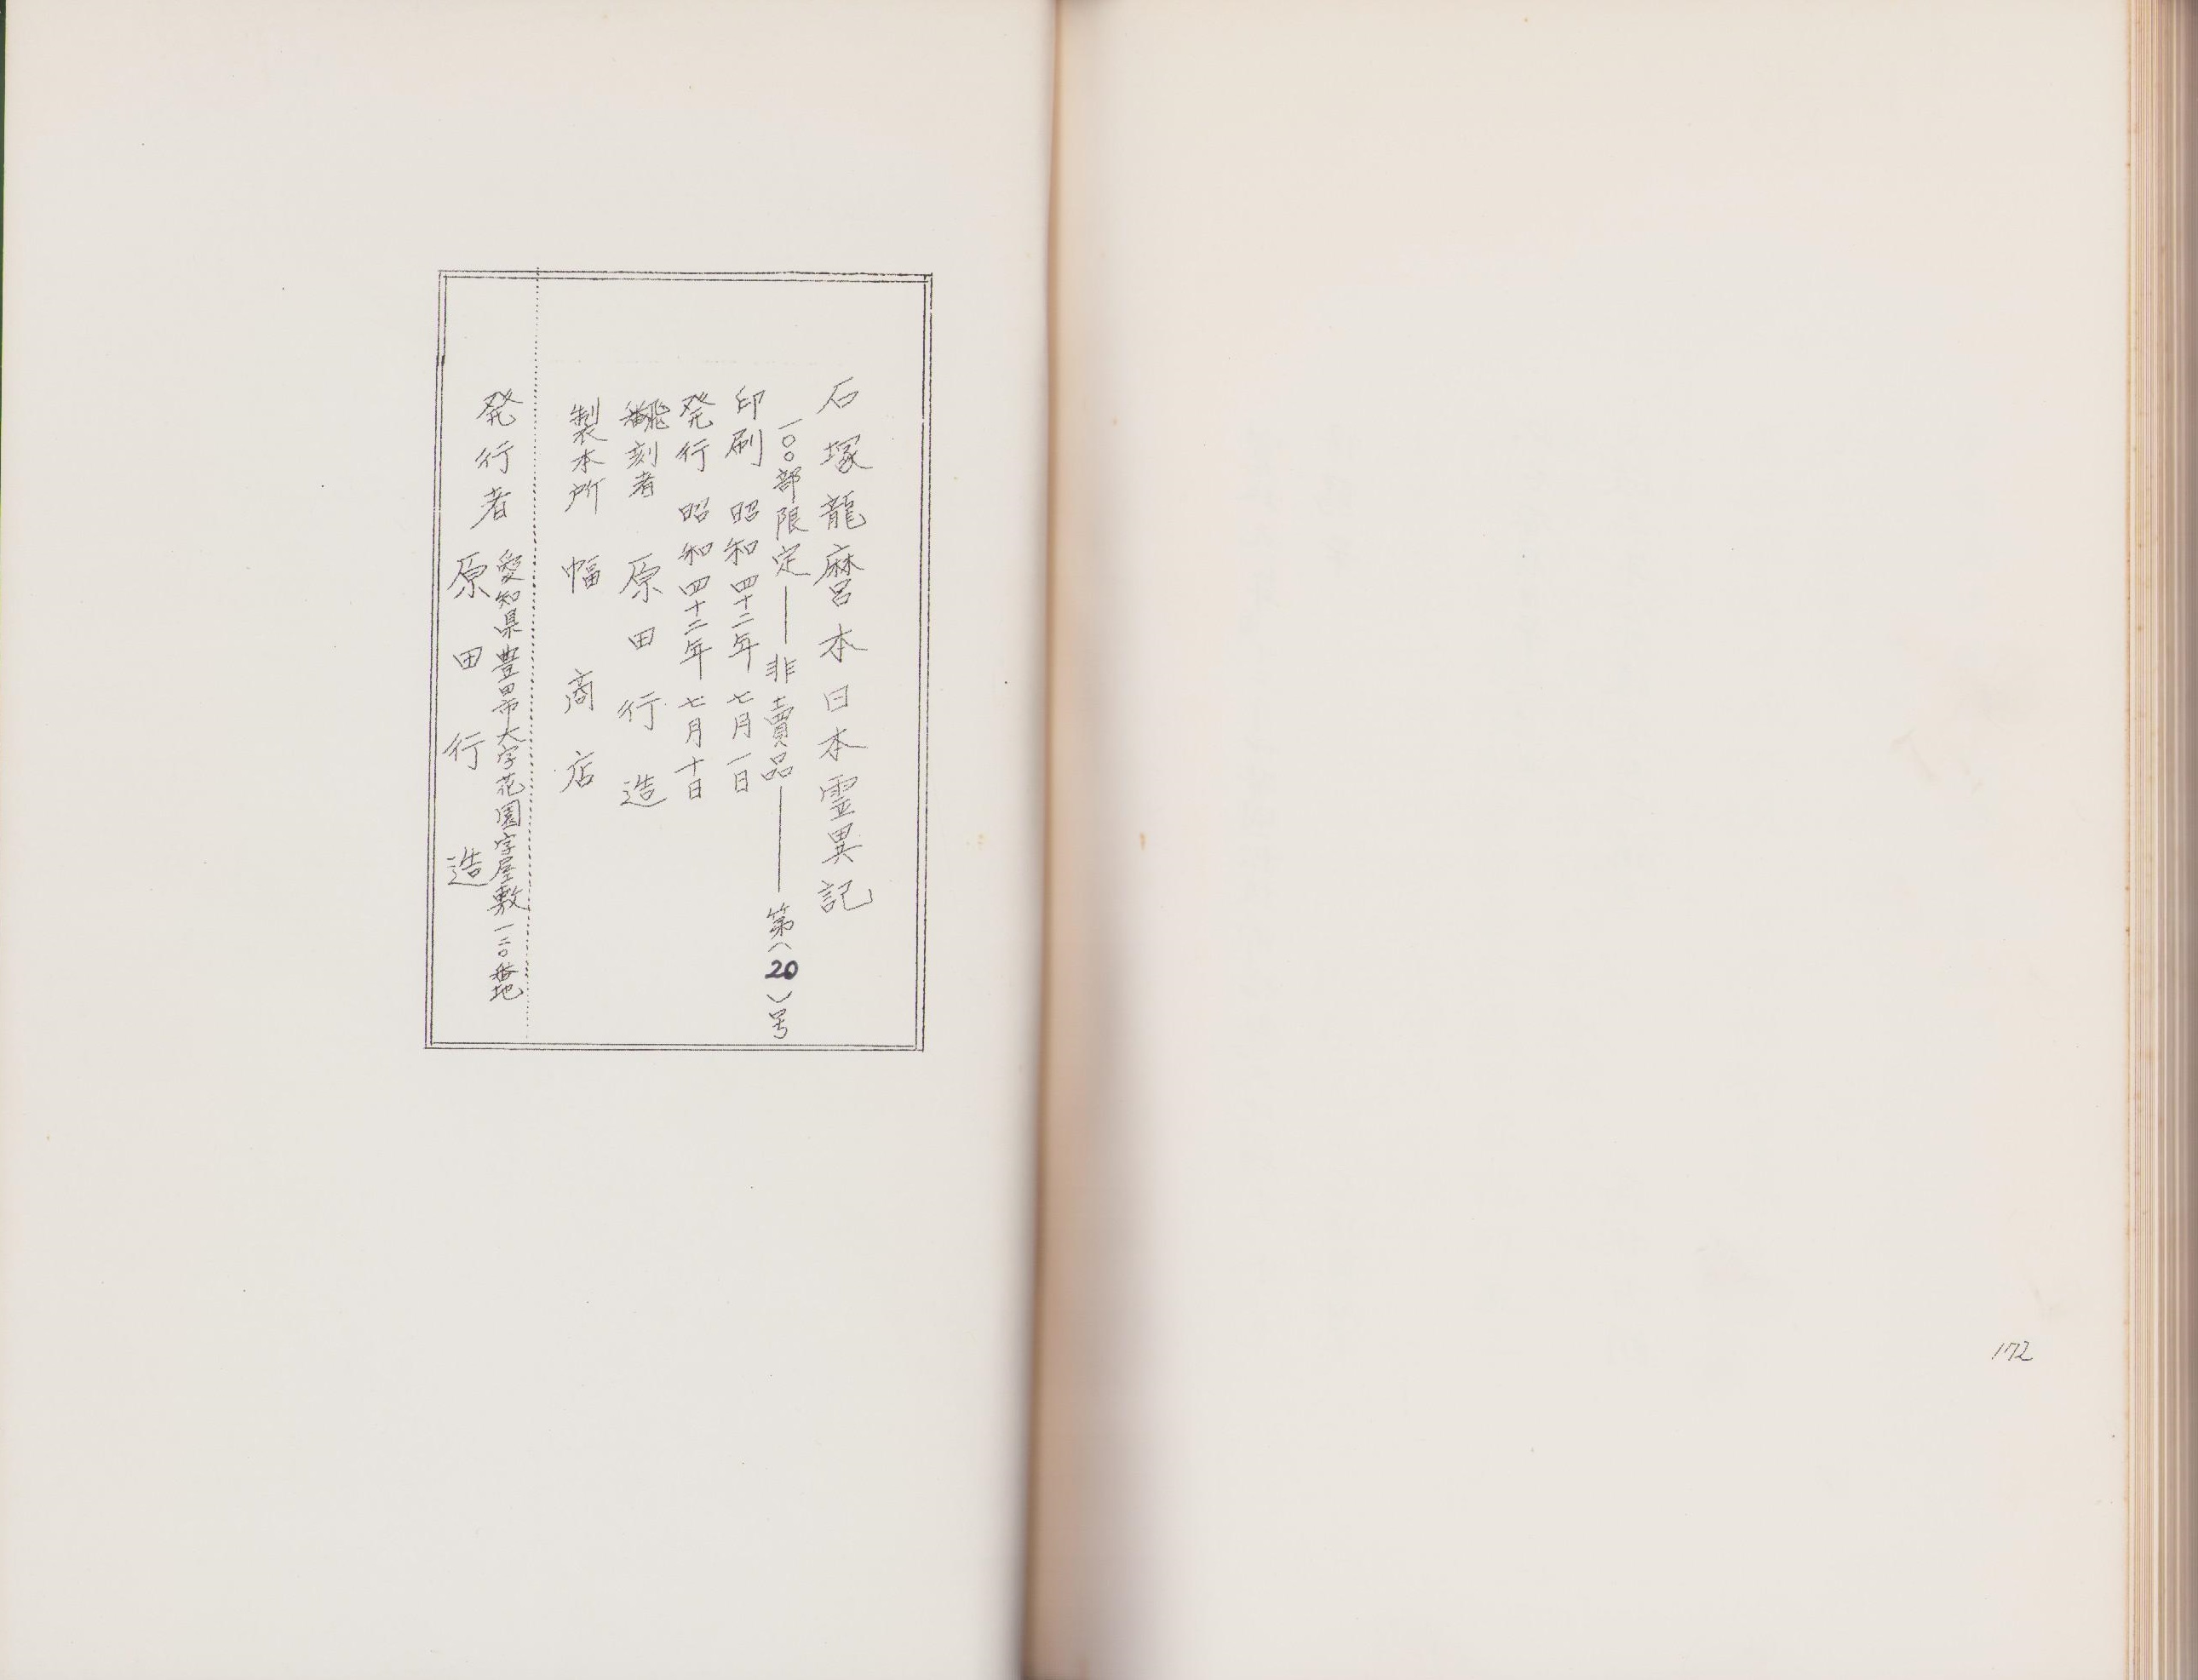 172
石塚龍麿本日本霊異記
一〇〇部限定――非賣品――第（20）号
印刷 昭和四十二年七月一日
発行 昭和四十二年七月十日
飜刻者 原田行造
製本所 幅商店
発行者 愛知県豊田市大字花園字屋敷一二〇番地
原田行造